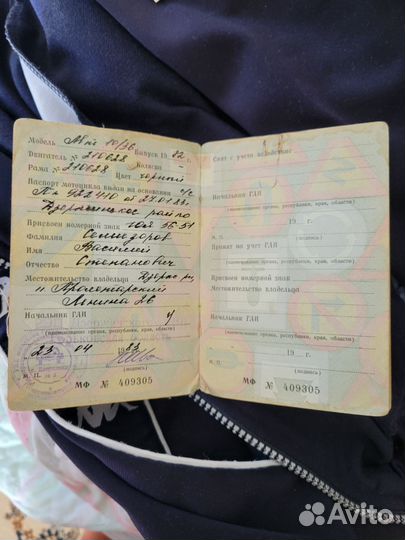 Модель МВ 10/36 Выпуск 1982 г.
Двигатель № 210028 Коляски —
Рама № 210028 Цвет чорный
Паспорт мотоцикла выдан на основании с/с
№ 422410 от 27.01.83г
Дзержинское райпо
Присвоен номерной знак 56-51
Фамилия
Имя Василий
Отчество Степанович
Местожительство владельца Дзерж
п Пролетарский
Ленина 26
Начальник ГАИ
(наименование органа, республики, края, области)
23 04 1983
М. П. (подпись)
МФ № 409305
Снят с учета вследствие
Начальник ГАИ
(наименование органа, республики, края, области)
19 г.
М. П. (подпись)
Принят на учет ГАИ
(наименование органа, республики, края, области)
Присвоен номерной знак
Местожительство владельца
Начальник ГАИ
(наименование органа, республики, края, области)
19 г.
М. П. (подпись)
МФ № 409305
Avito